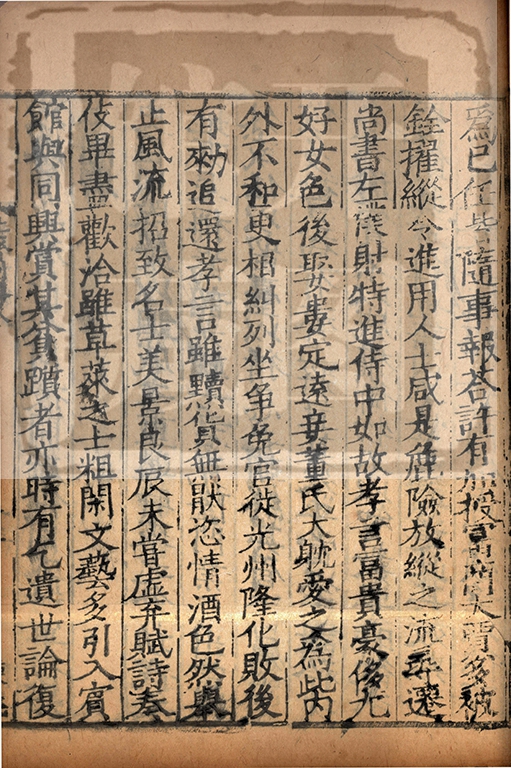 爲已任皆隨事報荅許有加授富商大賈多被
銓擢縱令進用人士咸是麄險放縱之流尋遷
尚書左僕射特進侍中如故孝言富貴豪侈尤
好女色後娶婁定遠妾董氏大躭愛之爲此内
外不和更相糾列坐争免官徙光州隆化敗後
有勑追還孝言雖黷貨無猒恣情酒色然舉
止風流招致名士美景良辰未嘗虚弃賦詩奏
伎畢盡歡洽雖草萊之士粗閑文藝多引入賓
館與同興賞其貧躓者亦時有乞遺世論復